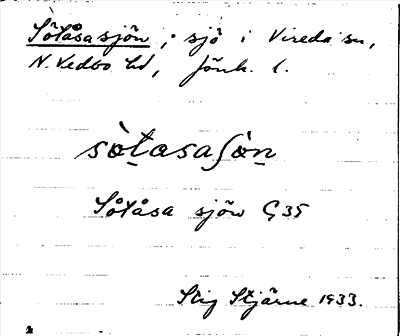 Sötåsasjön, sjö i Vireda sn,
N. Vedbo hd, Jönk. l.
sòtasaʃòn
Sötåsa sjön G35
Stig Stjärne 1933.